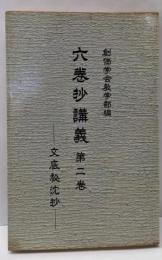 創価学会教学部編
六巻抄講義 第二巻
―文底秘沈抄―